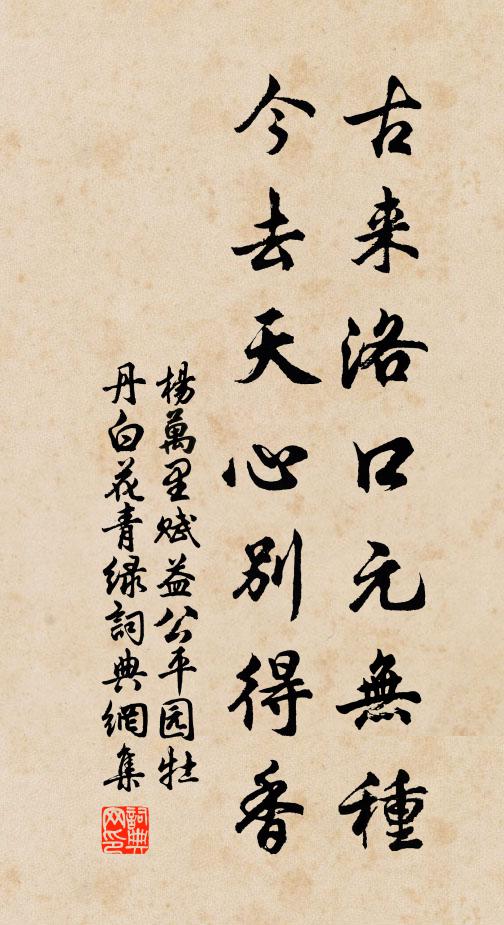 古来洛口元無種
今去天心別得香
楊萬里赋益公平园牡
丹白花青緑詞典網集
詞典
网印